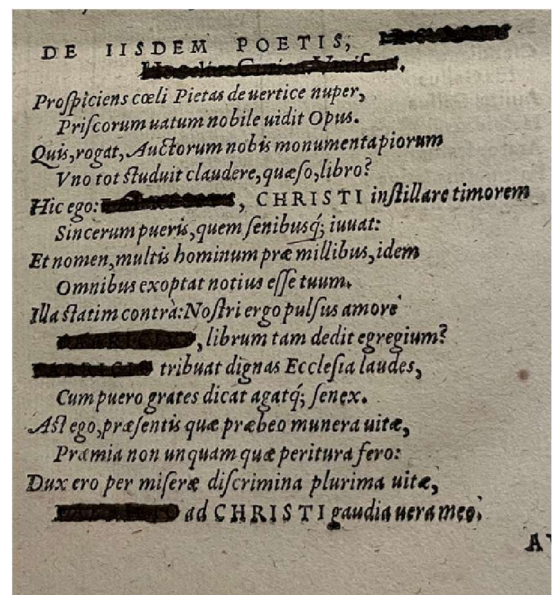 DE IISDEM POETIS,
Proſpiciens cœli Pietas de uertice nuper,
Priſcorum uatum nobile uidit Opus.
Quis, rogat, Auctorum nobis monumenta piorum
Vno tot ſtuduit claudere, quæſo, libro?
Hic ego: , CHRISTI inſtillare timorem
Sincerum pueris, quem ſenibusq́; iuuat:
Et nomen, multis hominum præ millibus, idem
Omnibus exoptat notius eſſe tuum.
Illa ſtatim contrà: Noſtri ergo pulſus amore
, librum tam dedit egregium?
tribuat dignas Eccleſia laudes,
Cum puero grates dicat agatq́; ſenex.
Aſt ego, præſentis quæ præbeo munera uitæ,
Præmia non unquam quæ peritura fero:
Dux ero per miſeræ diſcrimina plurima uitæ,
ad CHRISTI gaudia uera meo.